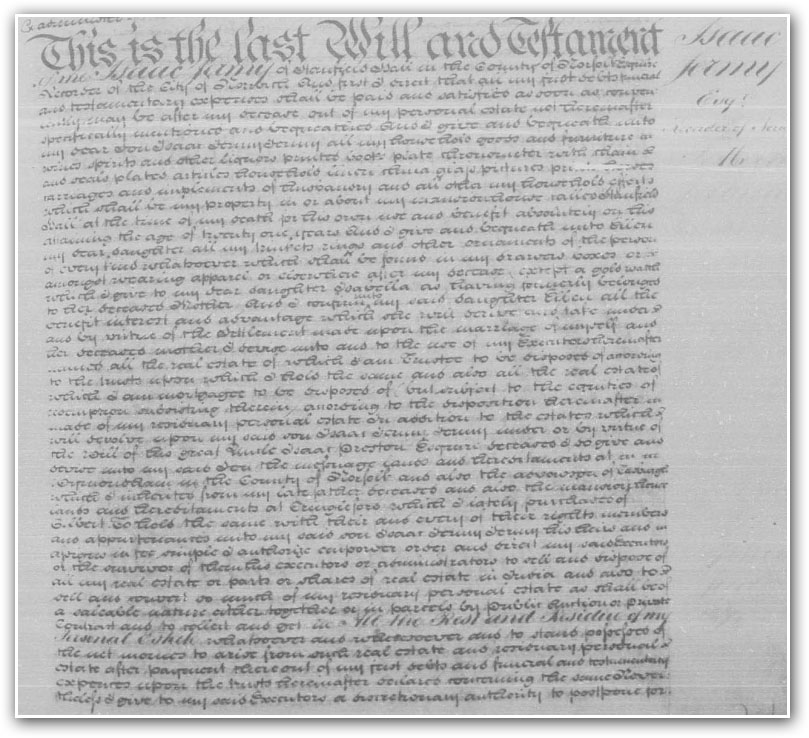 This is the last Will and Testament
of me Isaac Jermy of Stanfield Hall in the County of Norfolk Esquire
Recorder of the City of Norwich And first I direct that all my just debts funeral
and testamentary expenses shall be paid and satisfied as soon as conven
iently may be after my decease out of my personal estate not hereinafter
specifically mentioned and bequeathed And I give and bequeath unto
my dear Son Isaac Jermy Jermy all my household goods and furniture
wines spirits and other liquors printed books plate chronometer with chain &
and seals plated articles household linen china glass pictures prints horses
carriages and implements of husbandry and all other my household effects
which shall be my property in or about my mansion house called Stanfield
Hall at the time of my death for his own use and benefit absolutely on his
attaining the age of twenty one years And I give and bequeath unto Ellen
my dear daughter all my trinkets rings and other ornaments of the person
of every kind whatsoever which shall be found in my drawers boxes or
amongst wearing apparel or elsewhere after my decease except a gold watch
which I give to my dear daughter Isabella as having formerly belonged
to her deceased Mother And I confirm unto my said daughter Ellen all the
benefit interest and advantage which she will derive and take under
and by virtue of the Settlement made upon the marriage of myself and
her deceased mother I devise unto and to the use of my Executors hereinafter
named all the real estate of which I am Trustee to be disposed of according
to the trusts upon which I hold the same and also all the real estate of
which I am mortgagee to be disposed of (but subject to the equities of
redemption subsisting therein according to the disposition hereinafter
made of my residuary personal estate In addition to the estates which
will devolve upon my said son Isaac Jermy Jermy under or by virtue of
the Will of his great Uncle Isaac Preston Esquire deceased I do give and
devise unto my said Son the messuage lands and hereditaments at
in the County of Norfolk and also the advowson of
which I inherited from my late father deceased and also the manor
lands and hereditaments at which I lately purchased of
Gilbert To hold the same with their and every of their rights members
and appurtenances unto my said son Isaac Jermy Jermy his heirs and
assigns in fee simple I authorize empower order and direct my said Executors
or the survivor of them his executors or administrators to sell and dispose of
all my real estate or parts or shares of real estate in and also to
sell and convert so much of my residuary personal estate as shall be of
a saleable nature either together or in parcels by Public Auction or Private
Contract and to collect and get in All the Rest and Residue of my
Personal Estate whatsoever and wheresoever and to stand possessed of
the net monies to arise from such real estate and residuary personal
estate after payment thereout of my just debts and funeral and testamentary
expences upon the trusts hereinafter declared concerning the same Never
theless I give to my said Executors a discretionary authority to postpone for
Isaac
Jermy
Esqr.